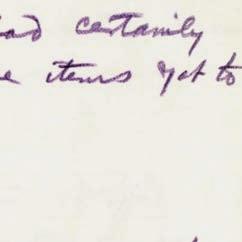 had certainly
items yet to